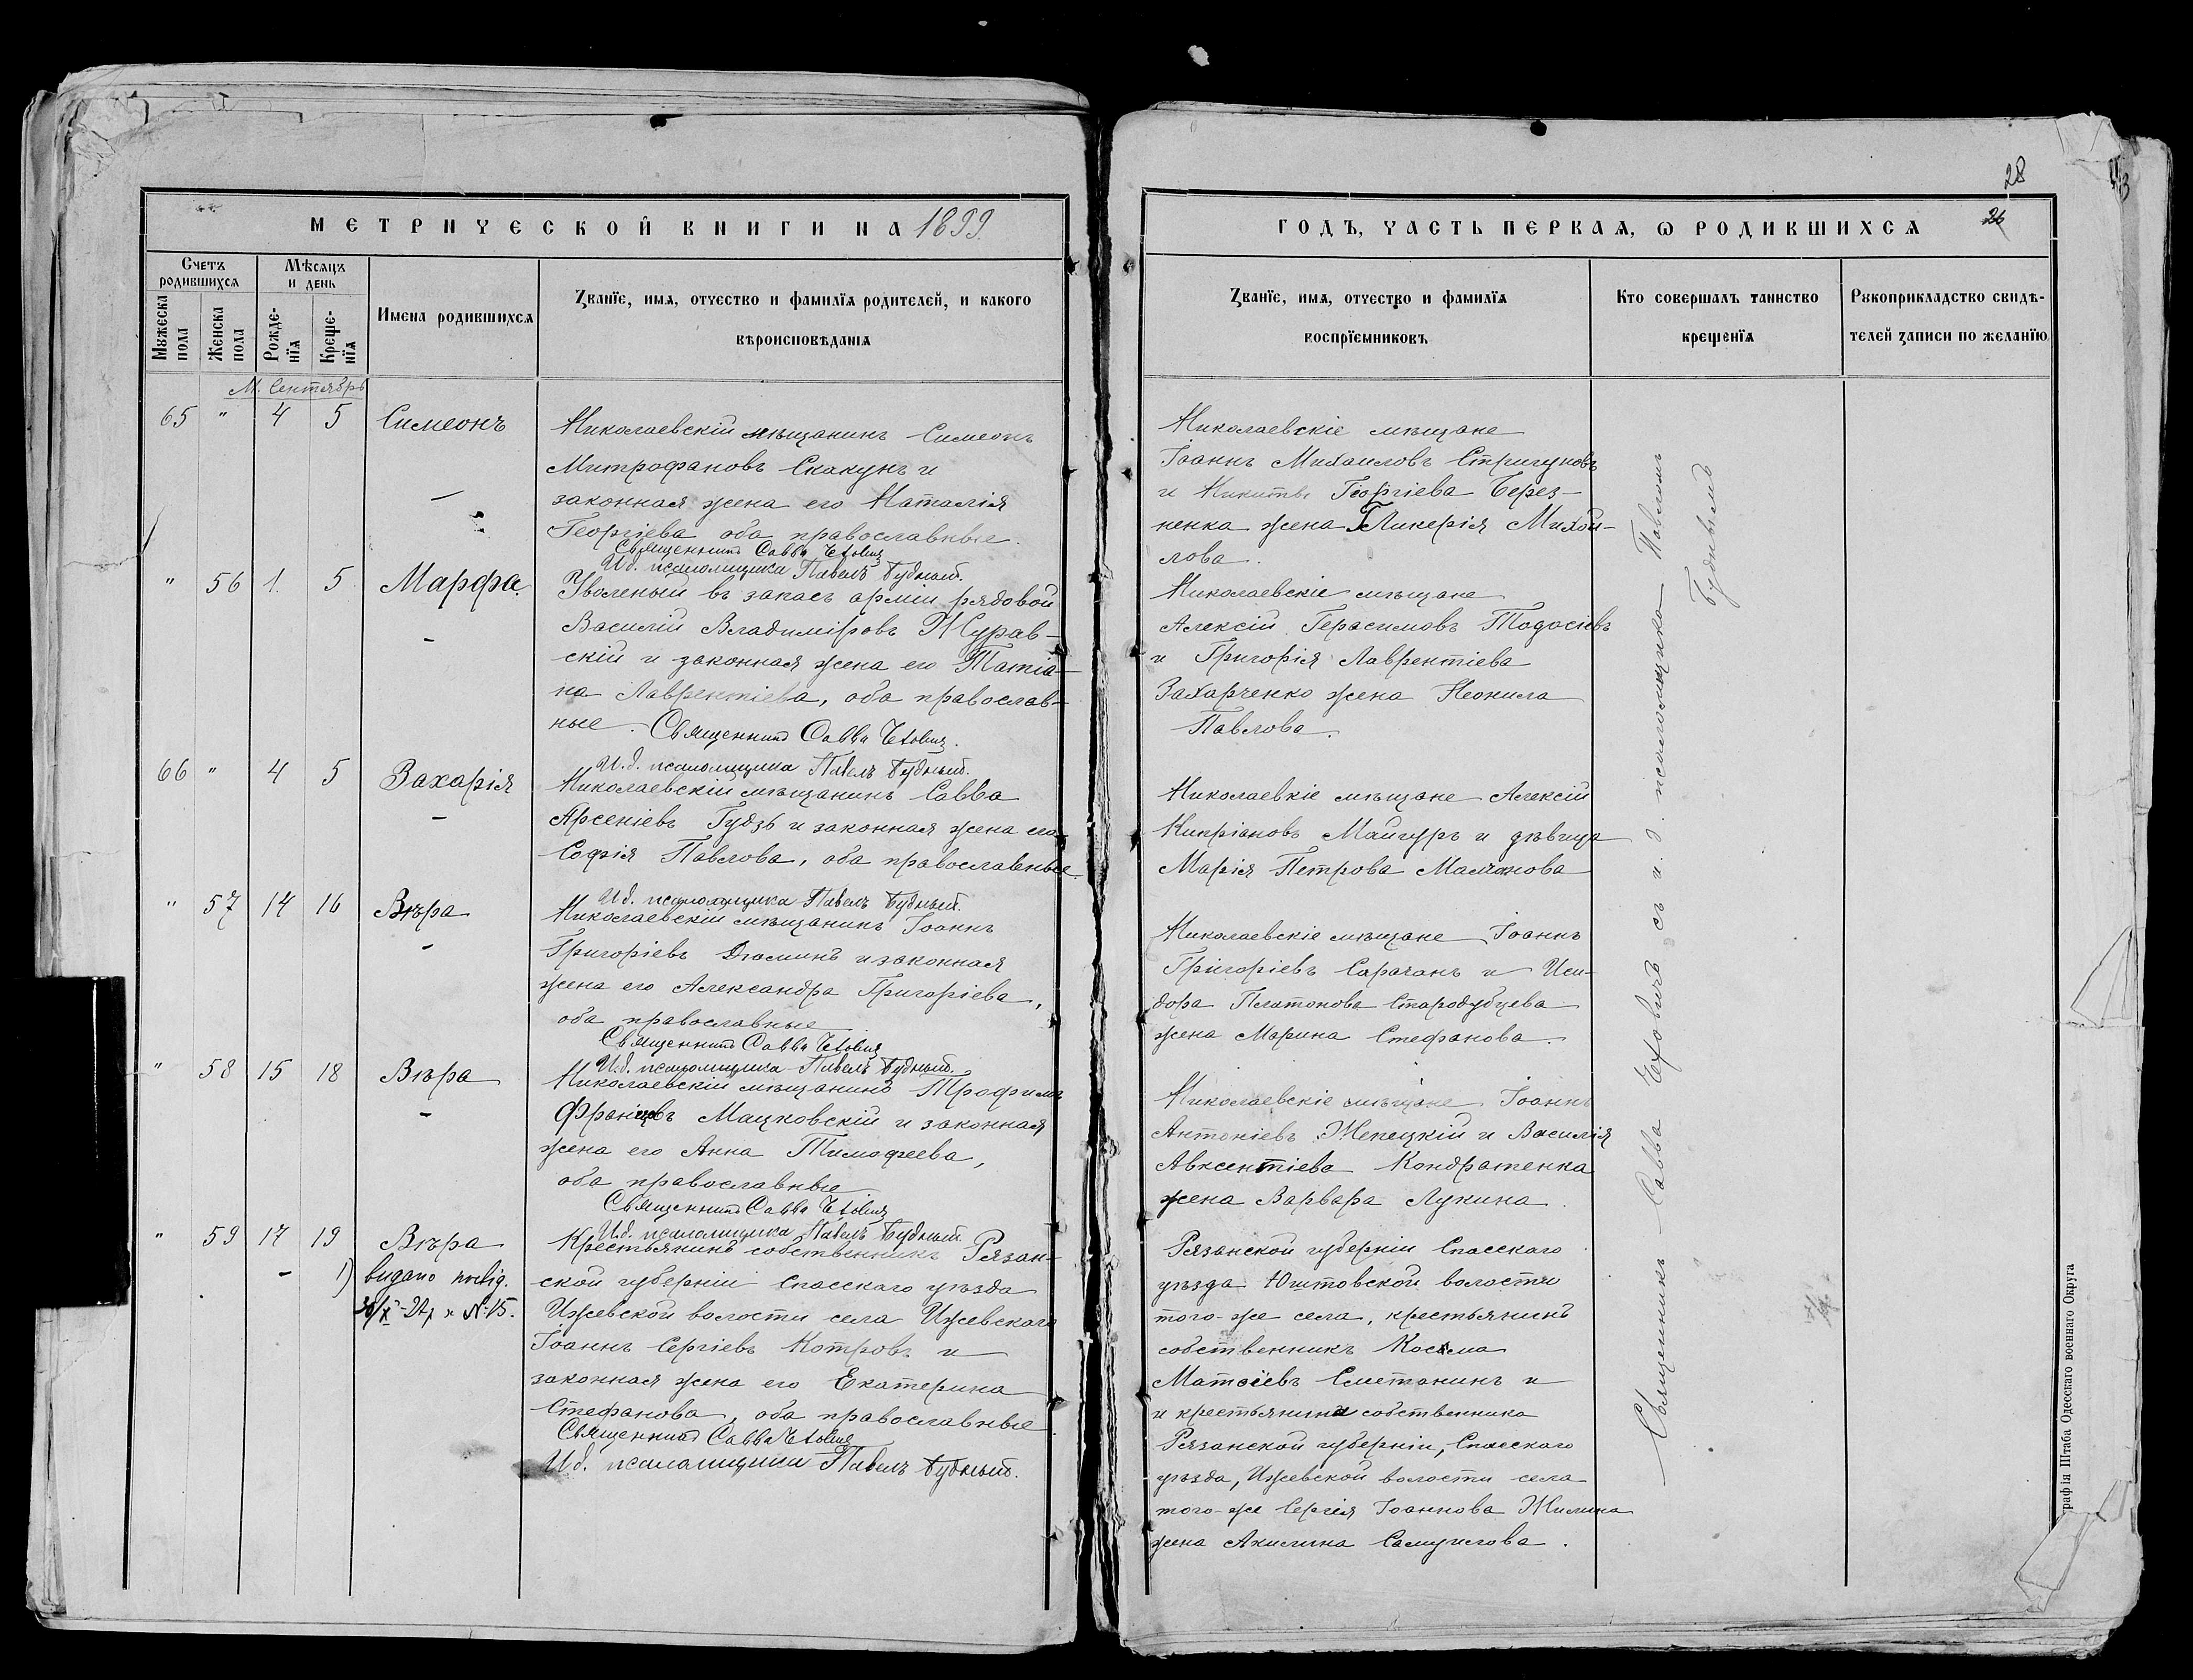 МЕТРИЧЕСКОЙ КНИГИ НА 1899
Счетъ родившихся
Мѣсяцъ и день
Имена родившихся
Званіе, имя, отчество и фамилія родителей, и какого
вѣроисповѣданія
Мужеска пола
Женска пола
Рожденія
Крещенія
М. Сентябрь
65 " 4 5 Симеонъ
Николаевскій мѣщанинъ Симеонъ
Митрофановъ Скакунъ и
законная жена его Наталія
Георгіева оба православные.
Священникъ Савва Чеховичъ
И.д. псаломщика Павелъ Будный.
" 56 1. 5 Марфа.
Уволеный въ запасъ арміи рядовой
Василій Владиміровъ Журав-
скій и законная жена его Татіа-
на Лаврентіева, оба православ-
ные. Священникъ Савва Чеховичъ.
И.д. псаломщика Павелъ Будный.
66 " 4 5 Захарія
Николаевскій мѣщанинъ Савва
Арсеніевъ Гудзь и законная жена его
Софія Павлова, оба православные.
И.д. псаломщика Павелъ Будный.
" 57 14 16 Вѣра
Николаевскій мѣщанинъ Іоаннъ
Григоріевъ Дюминъ и законная
жена его Александра Григоріева,
оба православные
Священникъ Савва Чеховичъ
И.д. псаломщика Павелъ Будный.
" 58 15 18 Вѣра
Николаевскій мѣщанинъ Трофимъ
Францевъ Мацковскій и законная
жена его Анна Тимофеева,
оба православные
Священникъ Савва Чеховичъ
И.д. псаломщика Павелъ Будный.
" 59 17 19 Вѣра
1) видано
№ 15.
Крестьянинъ собственникъ Рязан-
ской губерніи Спасскаго уѣзда
Ижевской волости села Ижевскаго
Іоаннъ Сергіевъ Котровъ и
законная жена его Екатерина
Стефанова, оба православные
Священникъ Савва Чеховичъ
И.д. псаломщика Павелъ Будный.
28
26
ГОДЪ, ЧАСТЬ ПЕРВАЯ, Ѡ РОДИВШИХСЯ
Званіе, имя, отчество и фамилія
воспріемниковъ
Кто совершалъ таинство
крещенія
Рукоприкладство свидѣ-
телей записи по желанію
Николаевскіе мѣщане
Іоаннъ Михаиловъ Стригуновъ
и Никиты Георгіева Берез-
ненка жена Гликерія Михаи-
лова.
Николаевскіе мѣщане
Алексій Герасимовъ Тодосіевъ
и Григорія Лаврентіева
Захарченко жена Неонила
Павлова.
Николаевкіе мѣщане Алексій
Кипріановъ Майгуръ и дѣвица
Марія Петрова Малчанова
Николаевскіе мѣщане Іоаннъ
Григоріевъ Сарачанъ и Иси-
дора Платонова Стародубцева
жена Марина Стефанова.
Николаевскіе мѣщане Іоаннъ
Антоніевъ Жепецкій и Василія
Авксентіева Кондратенка
жена Варвара Лукина.
Рязанской губерніи Спасскаго
уѣзда Юштовской волости
того-же села, крестьянинъ
собственникъ Косма
Матѳіевъ Сметанинъ и
и крестьянина собственника
Рязанской губерніи, Спасскаго
уѣзда, Ижевской волости села
того-же Сергія Іоаннова Жилина
жена Акилина Самуилова.
Священникъ Савва Чеховичъ съ и.д. псаломщика Павломъ
Буднымъ
рафія Штаба Одесскаго военнаго Округа